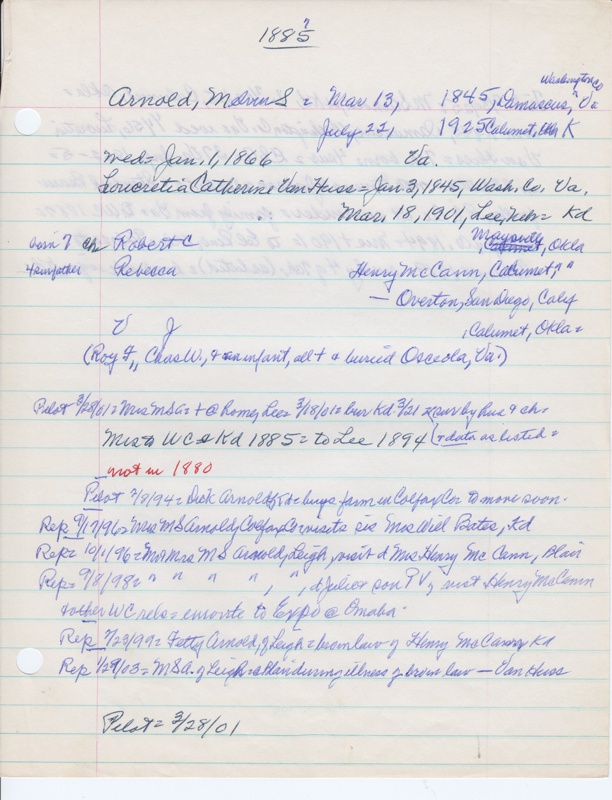 1885 7
Washington Co
Arnold, Melvin S = Mar. 13, 1845, Damascus, Va
July 22, 1925 Calumet, Okla K
med = Jan. 1, 1866 Va.
Loucretia Catherine Van Huss = Jan 3, 1845, Wash. Co. Va.
Mar. 18, 1901, Lee, Neb = Kd
born 7 ch Robert C Maysville, Okla
4 surv father Rebecca Henry McCann, Calumet, " "
— Overton, San Diego, Calif
V J , Calumet, Okla =
(Roy F,, Chas W., + an infant, all + & buried Osceola, Va.)
Pilot 3/28/01 = Mrs MSA = + @ home, Lee = 3/18/01 = bur Kd. 3/21 = surv by hus & ch =
Mrs to WC & Kd 1885 = to Lee 1894 (+ data as listed =
not in 1880
Pilot 2/8/94 = Dick Arnold buys farm in Colfax Co. to move soon.
Rep 9/17/96 = Mrs MS Arnold, Colfax Co visits sis Mrs Will Bates, Kd
Rep = 10/1/96 = Mr Mrs M S Arnold, Leigh, visit d Mrs Henry Mc Cann, Blair
Rep = 9/8/98 = " " " " , " , d Julia & son P V, visit Henry McCann
& other WC rels = enroute to Expo @ Omaha.
Rep 7/29/99 = Fetty Arnold, of Leigh = brom law of Henry McCann, Kd
Rep 1/29/03 = MSA. of Leigh = @ Blair during illness of brom law — Van Huss
Pilot = 3/28/01